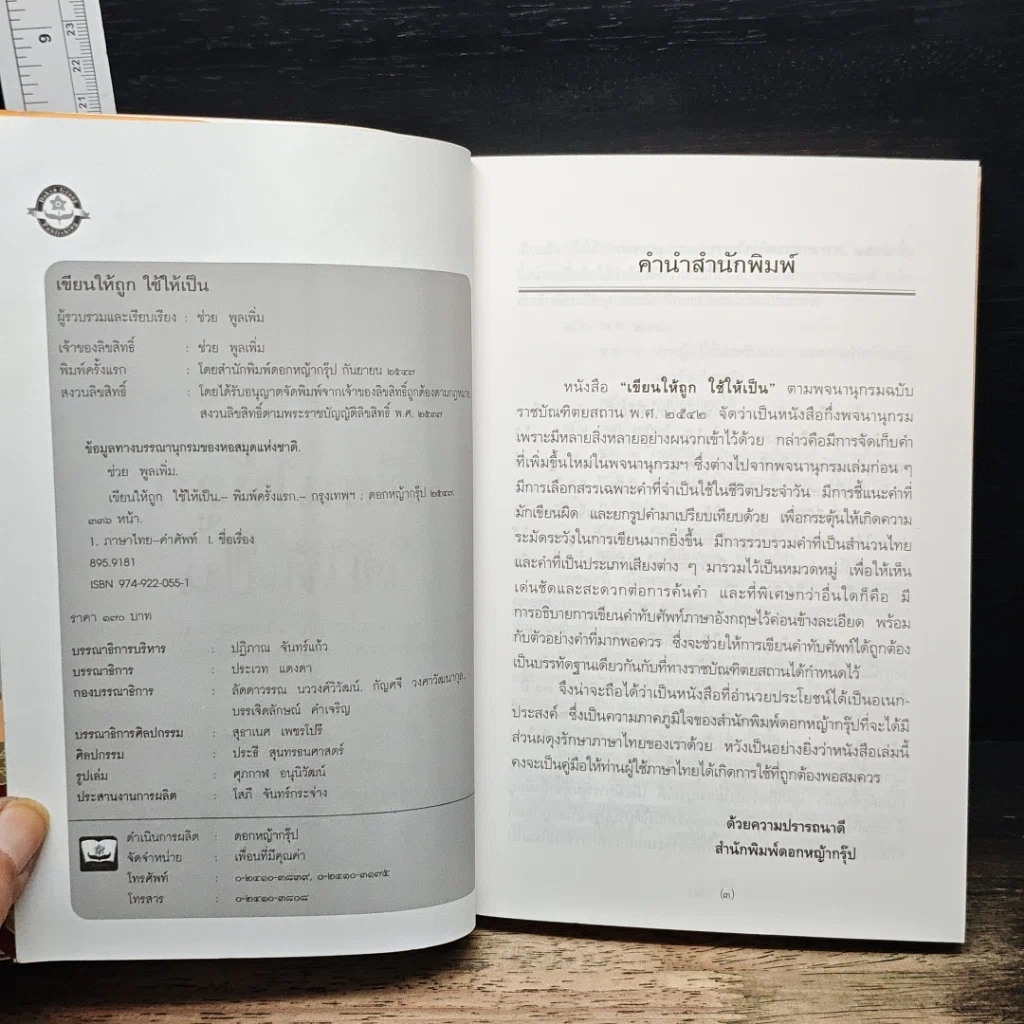 9
23
22
21
เขียนให้ถูก ใช้ให้เป็น
ผู้รวบรวมและเรียบเรียง : ช่วย พูลเพิ่ม
เจ้าของลิขสิทธิ์ : ช่วย พูลเพิ่ม
พิมพ์ครั้งแรก : โดยสำนักพิมพ์ดอกหญ้ากรุ๊ป กันยายน ๒๕๔๗
สงวนลิขสิทธิ์ : โดยได้รับอนุญาตจัดพิมพ์จากเจ้าของลิขสิทธิ์ถูกต้องตามกฎหมาย
สงวนลิขสิทธิ์ตามพระราชบัญญัติลิขสิทธิ์ พ.ศ. ๒๕๓๗
ข้อมูลทางบรรณานุกรมของหอสมุดแห่งชาติ.
ช่วย พูลเพิ่ม.
เขียนให้ถูก ใช้ให้เป็น.– พิมพ์ครั้งแรก.– กรุงเทพฯ ; ดอกหญ้ากรุ๊ป ๒๕๔๗.
๓๓๖ หน้า.
1. ภาษาไทย–คำศัพท์ I. ชื่อเรื่อง
895.9181
ISBN 974-922-055-1
ราคา ๑๗๐ บาท
บรรณาธิการบริหาร : ปฏิภาณ จันทร์แก้ว
บรรณาธิการ : ประเวท แดงดา
กองบรรณาธิการ : ลัดดาวรรณ นววงศ์วิวัฒน์. กัญศจี วงศาวัฒนากุล,
บรรเจิดลักษณ์ คำเจริญ
บรรณาธิการศิลปกรรม : สุธาเนศ เพชรโปรี
ศิลปกรรม : ประธี สุนทรธนศาสตร์
รูปเล่ม : ศุภกาฬ อนุนิวัฒน์
ประสานงานการผลิต : โสภี จันทร์กระจ่าง
ดำเนินการผลิต : ดอกหญ้ากรุ๊ป
จัดจำหน่าย : เพื่อนที่มีคุณค่า
โทรศัพท์ : ๐-๒๔๑๐-๓๘๓๙, ๐-๒๔๑๐-๓๑๗๕
โทรสาร : ๐-๒๔๑๐-๓๘๐๘
คำนำสำนักพิมพ์
หนังสือ “เขียนให้ถูก ใช้ให้เป็น” ตามพจนานุกรมฉบับ
ราชบัณฑิตยสถาน พ.ศ. ๒๕๔๒ จัดว่าเป็นหนังสือกึ่งพจนานุกรม
เพราะมีหลายสิ่งหลายอย่างผนวกเข้าไว้ด้วย กล่าวคือมีการจัดเก็บคำ
ที่เพิ่มขึ้นใหม่ในพจนานุกรมฯ ซึ่งต่างไปจากพจนานุกรมเล่มก่อน ๆ
มีการเลือกสรรเฉพาะคำที่จำเป็นใช้ในชีวิตประจำวัน มีการชี้แนะคำที่
มักเขียนผิด และยกรูปคำมาเปรียบเทียบด้วย เพื่อกระตุ้นให้เกิดความ
ระมัดระวังในการเขียนมากยิ่งขึ้น มีการรวบรวมคำที่เป็นสำนวนไทย
และคำที่เป็นประเภทเสียงต่าง ๆ มารวมไว้เป็นหมวดหมู่ เพื่อให้เห็น
เด่นชัดและสะดวกต่อการค้นคำ และที่พิเศษกว่าอื่นใดก็คือ มี
การอธิบายการเขียนคำทับศัพท์ภาษาอังกฤษไว้ค่อนข้างละเอียด พร้อม
กับตัวอย่างคำที่มากพอควร ซึ่งจะช่วยให้การเขียนคำทับศัพท์ได้ถูกต้อง
เป็นบรรทัดฐานเดียวกันกับที่ทางราชบัณฑิตยสถานได้กำหนดไว้
จึงน่าจะถือได้ว่าเป็นหนังสือที่อำนวยประโยชน์ได้เป็นอเนก-
ประสงค์ ซึ่งเป็นความภาคภูมิใจของสำนักพิมพ์ดอกหญ้ากรุ๊ปที่จะได้มี
ส่วนผดุงรักษาภาษาไทยของเราด้วย หวังเป็นอย่างยิ่งว่าหนังสือเล่มนี้
คงจะเป็นคู่มือให้ท่านผู้ใช้ภาษาไทยได้เกิดการใช้ที่ถูกต้องพอสมควร
ด้วยความปรารถนาดี
สำนักพิมพ์ดอกหญ้ากรุ๊ป
(๓)